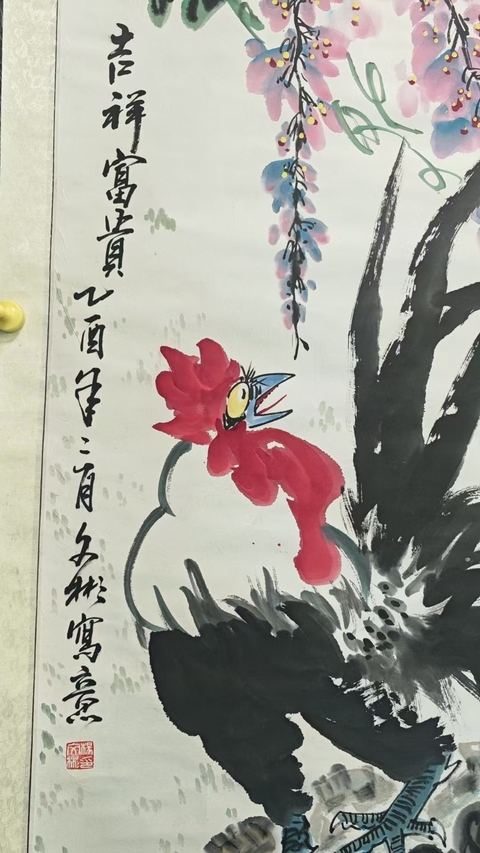 吉祥富貴
乙酉年二月文彬寫意